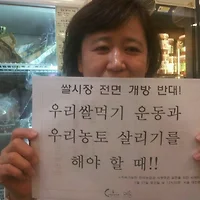 쌀시장 전면 개방 반대!
우리쌀먹기 운동과
우리농토 살리기를
해야 할 때!!